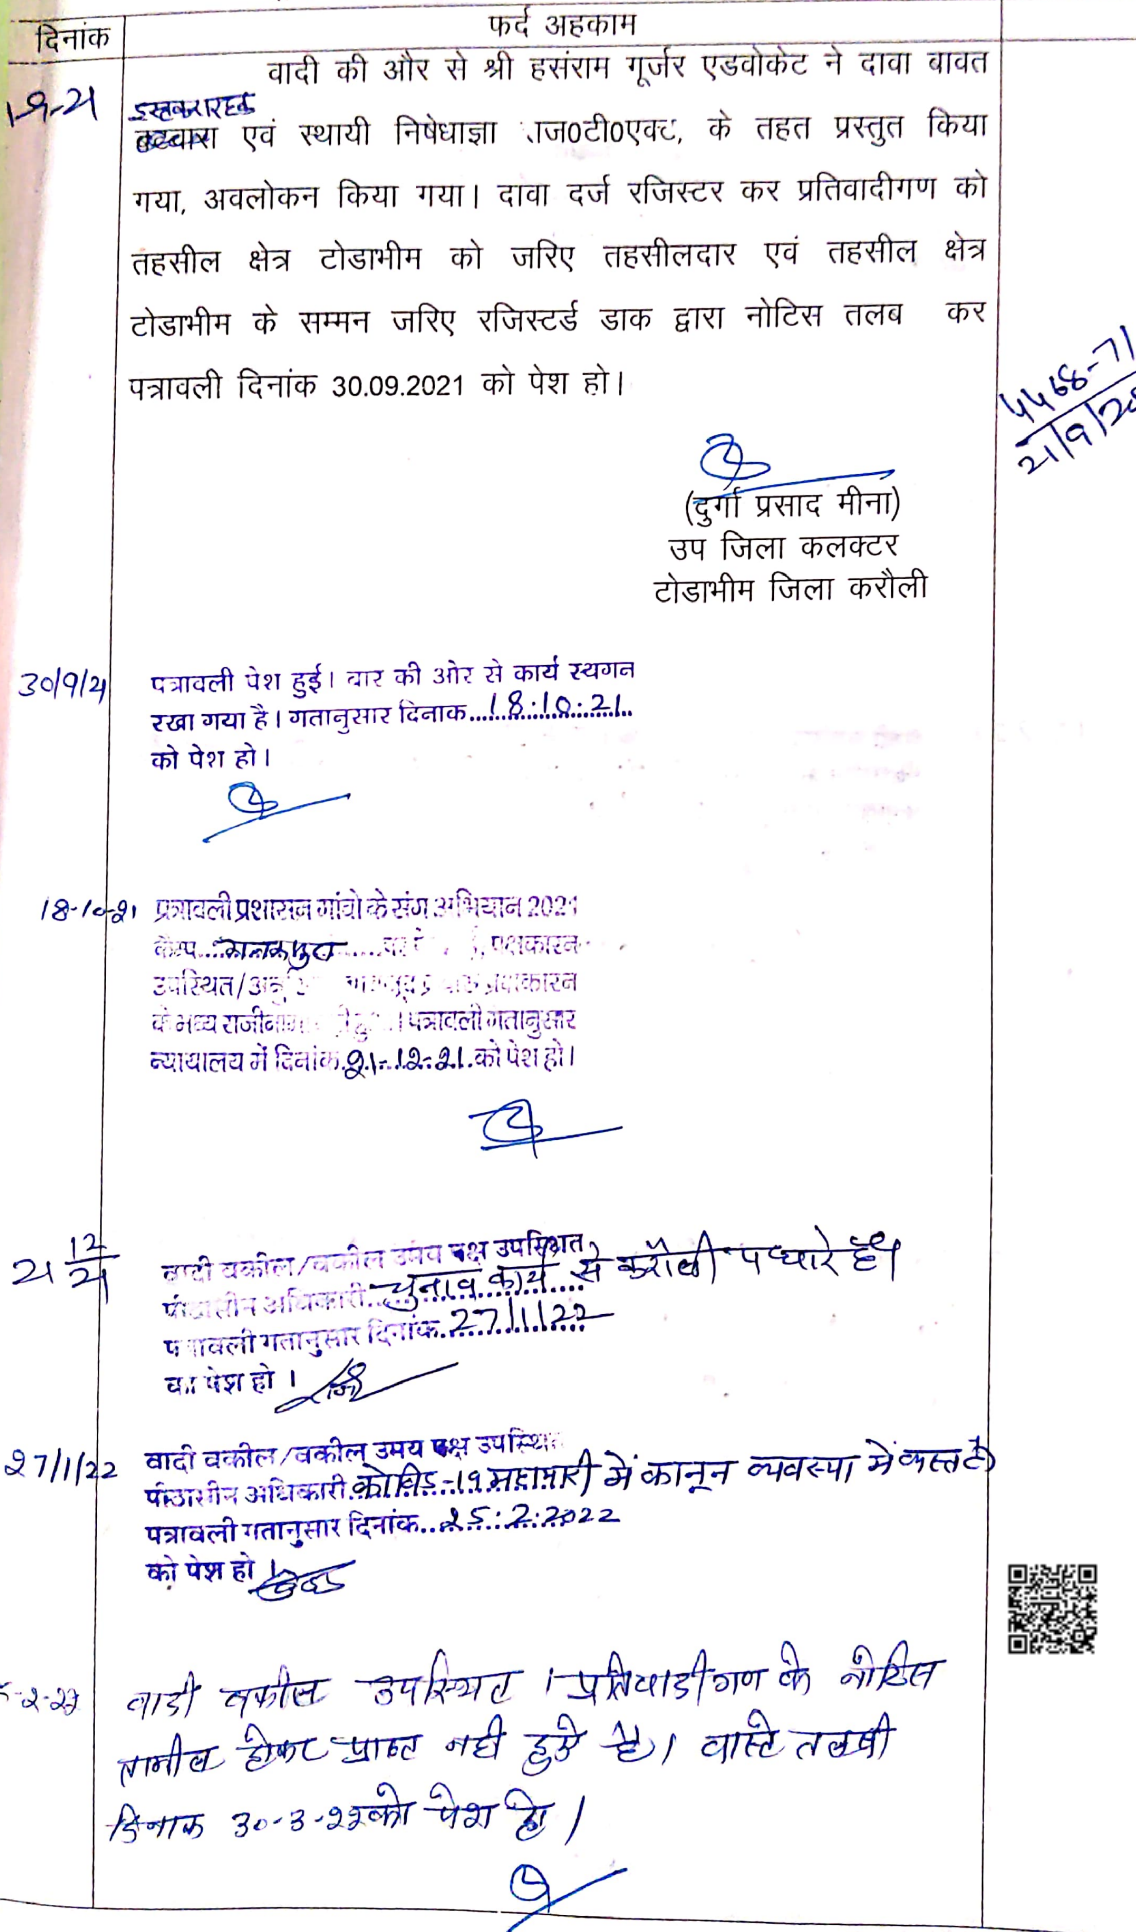 दिनांक
फर्द अहकाम
वादी की और से श्री हसंराम गूर्जर एडवोकेट ने दावा बावत
एवं स्थायी निषेधाज्ञा ाज0टी0एक्ट, के तहत प्रस्तुत किया
गया, अवलोकन किया गया। दावा दर्ज रजिस्टर कर प्रतिवादीगण को
तहसील क्षेत्र टोडाभीम को जरिए तहसीलदार एवं तहसील क्षेत्र
टोडाभीम के सम्मन जरिए रजिस्टर्ड डाक द्वारा नोटिस तलब कर
पत्रावली दिनांक 30.09.2021 को पेश हो।
4468-71
21/9/20
(दुर्गा प्रसाद मीना)
उप जिला कलक्टर
टोडाभीम जिला करौली
30/9/21
पत्रावली पेश हुई। वार की ओर से कार्य स्थगन
रखा गया है। गतानुसार दिनाक...18:10:21..
को पेश हो।
18-10-21
पत्रावली प्रशासन गांवो के संग अभियान 2021
केम्प पक्षकारन
उपस्थित/ पक्षकारन
के मध्य राजीनामा । पत्रावली गतानुसार
न्यायालय में दिनांक.21-12-21.को पेश हो।
21 12/21
वादी वकील/वकील उमय पक्ष उपस्थित
पीठासीन अधिकारी...चुनाव कार्य से करौली पधारे है।
पत्रावली गतानुसार दिनांक..27/1/22
का पेश हो ।
27/1/22
वादी वकील/वकील उमय पक्ष उपस्थित
पीठासीन अधिकारी.कोविड-19 महामारी में कानून व्यवस्था में व्यस्त है
पत्रावली गतानुसार दिनांक...25:2:2022
को पेश हो ।
-2-22
वादी वकील उपस्थित । प्रतिवादीगण के नोटिस
तामील होकर प्राप्त नही हुये है। वास्ते तलबी
दिनाक 30-3-22 को पेश हो ।